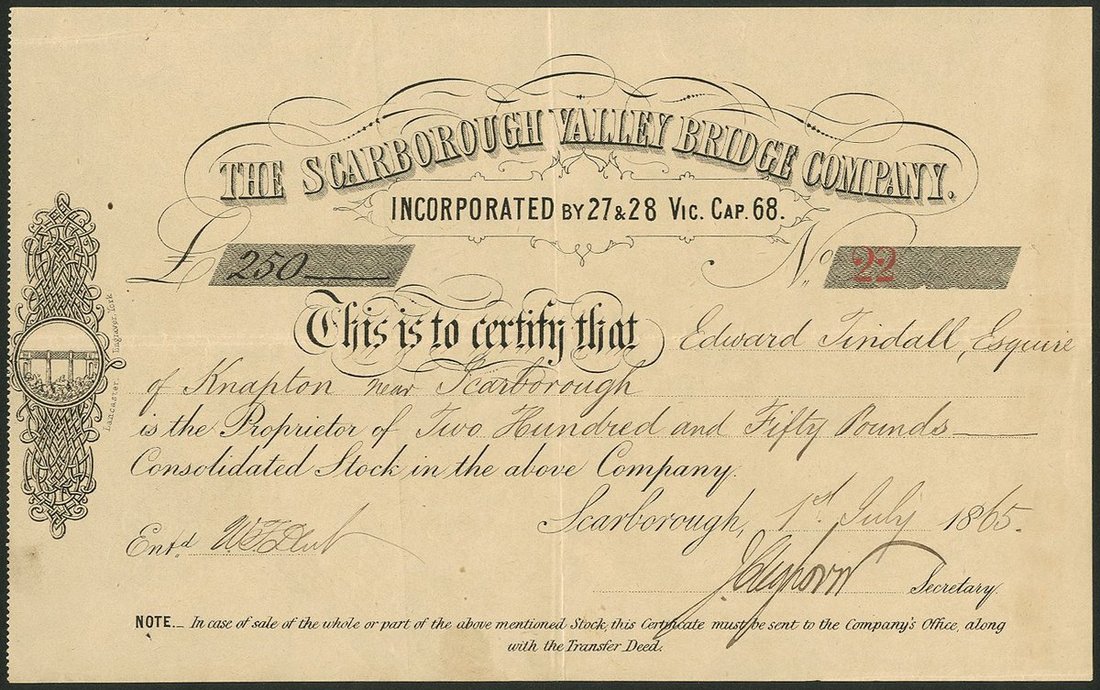 THE SCARBOROUGH VALLEY BRIDGE COMPANY.
INCORPORATED BY 27 & 28 VIC. CAP. 68.
£ 250
No. 22
This is to certify that Edward Tindall, Esquire
of Knapton near Scarborough
is the Proprietor of Two Hundred and Fifty Pounds
Consolidated Stock in the above Company.
Scarborough, 1st July 1865.
Entd.
Secretary.
NOTE.— In case of sale of the whole or part of the above mentioned Stock, this Certificate must be sent to the Company's Office, along
with the Transfer Deed.
Lancaster, Engraver, York